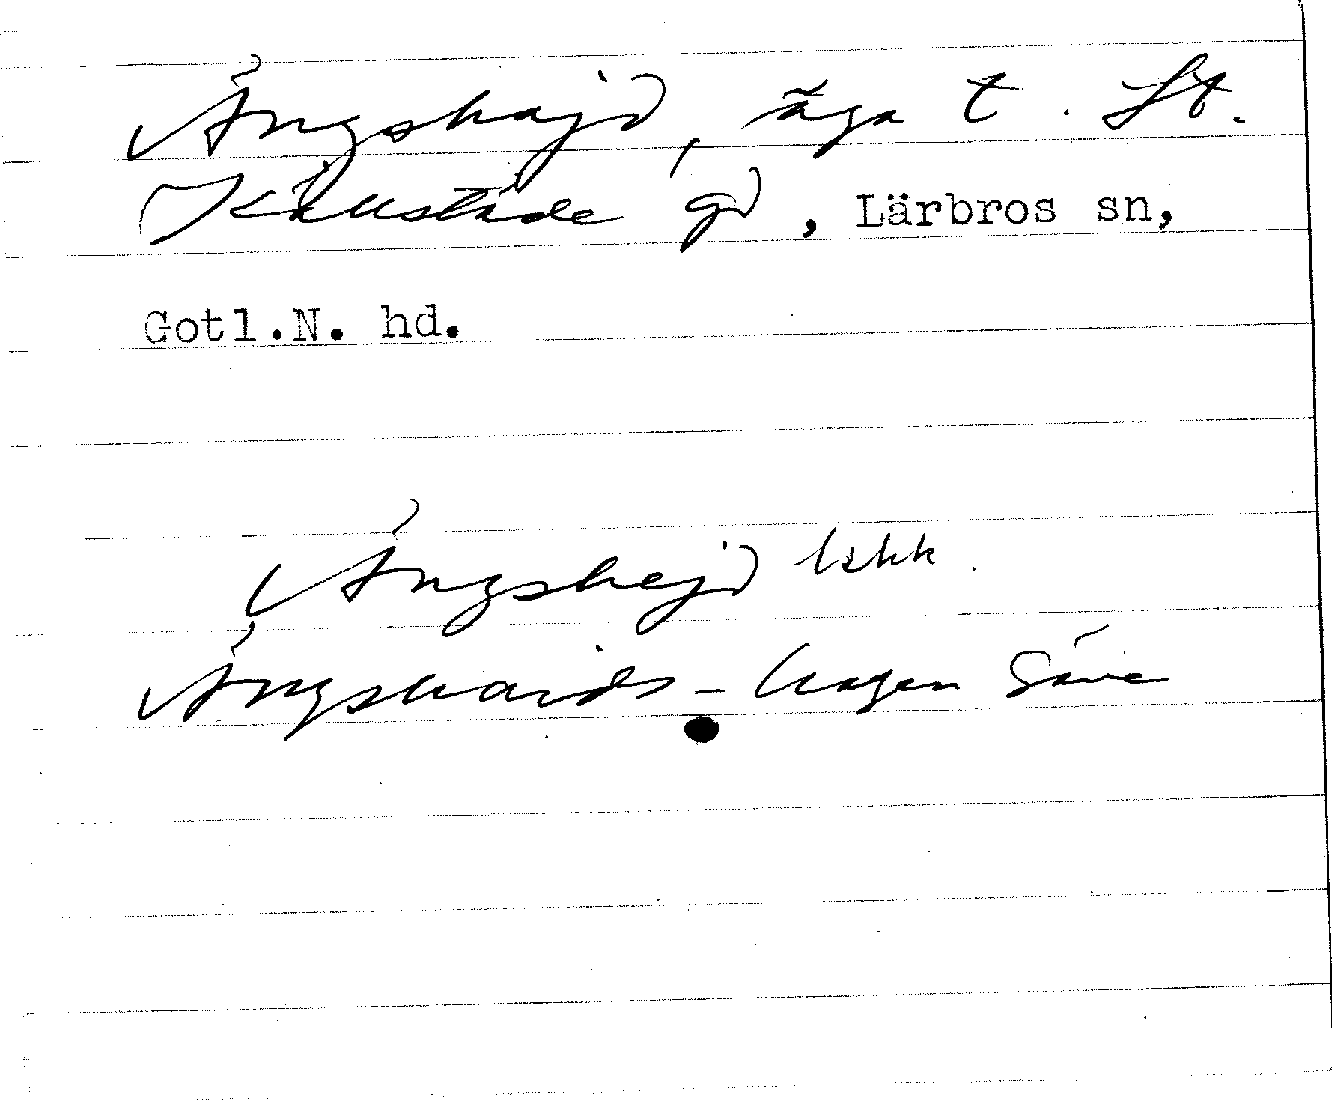 Ängshajd, äga t. St.
Källstäde gd, Lärbros sn,
Gotl.N. hd.
Ängshejd lskk.
Ängshaids-hagen Säve